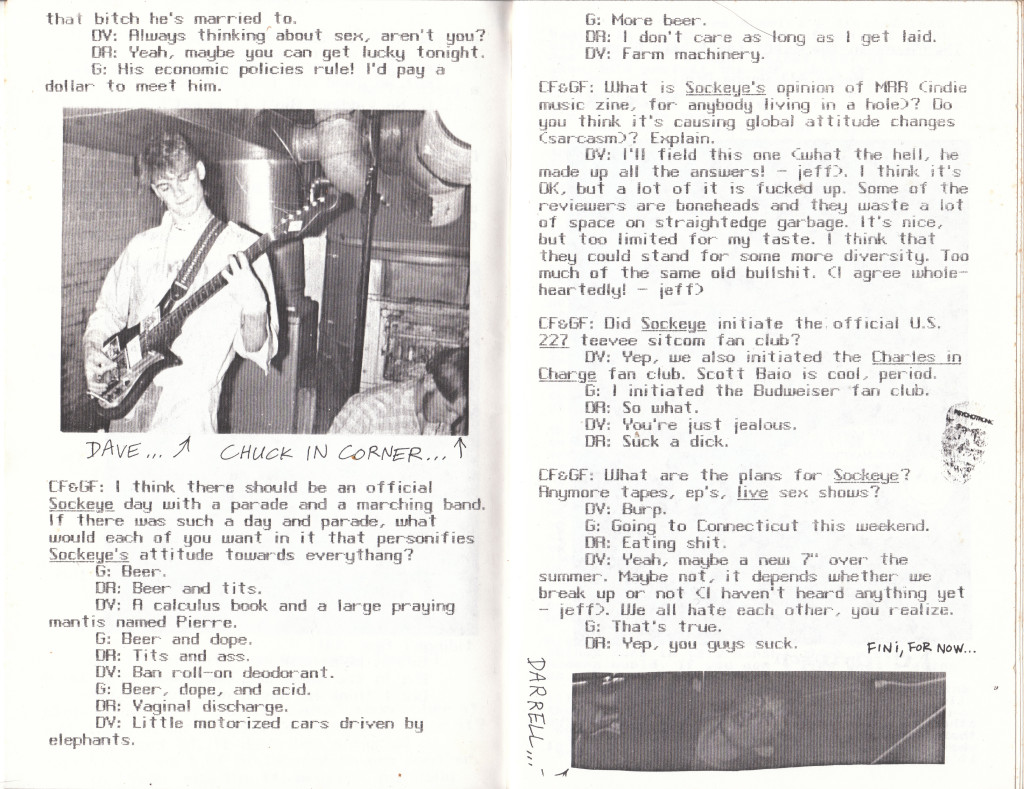 that bitch he's married to.
DV: Always thinking about sex, aren't you?
DR: Yeah, maybe you can get lucky tonight.
G: His economic policies rule! I'd pay a
dollar to meet him.
DAVE... CHUCK IN CORNER...
CF&GF: I think there should be an official
Sockeye day with a parade and a marching band.
If there was such a day and parade, what
would each of you want in it that personifies
Sockeye's attitude towards everythang?
G: Beer.
DR: Beer and tits.
DV: A calculus book and a large praying
mantis named Pierre.
G: Beer and dope.
DR: Tits and ass.
DV: Ban roll-on deodorant.
G: Beer, dope, and acid.
DR: Vaginal discharge.
DV: Little motorized cars driven by
elephants.
G: More beer.
DR: I don't care as long as I get laid.
DV: Farm machinery.
CF&GF: What is Sockeye's opinion of MRR (indie
music zine, for anybody living in a hole)? Do
you think it's causing global attitude changes
(sarcasm)? Explain.
DV: I'll field this one (what the hell, he
made up all the answers! - jeff). I think it's
OK, but a lot of it is fucked up. Some of the
reviewers are boneheads and they waste a lot
of space on straightedge garbage. It's nice,
but too limited for my taste. I think that
they could stand for some more diversity. Too
much of the same old bullshit. (I agree whole-
heartedly! - jeff)
CF&GF: Did Sockeye initiate the official U.S.
227 teevee sitcom fan club?
DV: Yep, we also initiated the Charles in
Charge fan club. Scott Baio is cool, period.
G: I initiated the Budweiser fan club.
DR: So what.
DV: You're just jealous.
DR: Suck a dick.
PSYCHOTRONIC
CF&GF: What are the plans for Sockeye?
Anymore tapes, ep's, live sex shows?
DV: Burp.
G: Going to Connecticut this weekend.
DR: Eating shit.
DV: Yeah, maybe a new 7" over the
summer. Maybe not, it depends whether we
break up or not (I haven't heard anything yet
- jeff). We all hate each other, you realize.
G: That's true.
DR: Yep, you guys suck.
FINI, FOR NOW...
DARRELL...